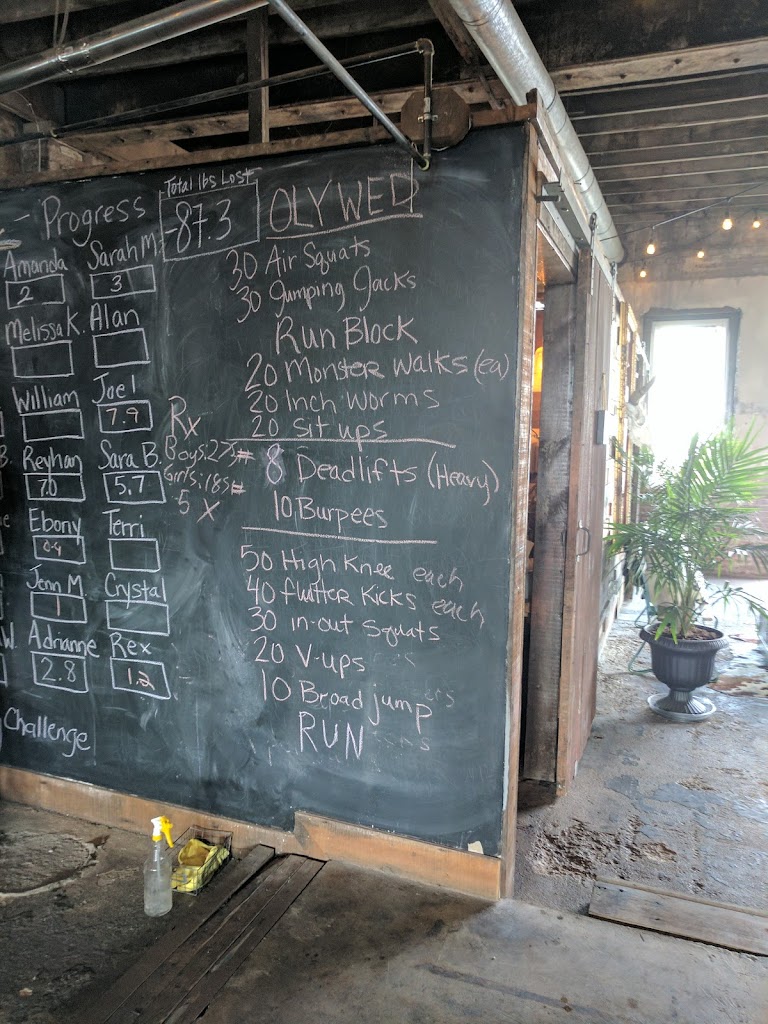 - Progress
Amanda Sarah M.
2 3
Melissa K. Alan
William Joel
7.9
Reyhan Sara B.
7.0 5.7
Ebony Terri
0.4
Jenn M Crystal
1
Adrianne Rex
2.8 1.2
Challenge
Total lbs Lost
-87.3
OLY WED
30 Air Squats
30 Jumping Jacks
Run Block
20 Monster Walks (ea)
20 Inch Worms
20 Sit ups
Rx
Boys: 275#
Girls: 185#
5 X
8 Deadlifts (Heavy)
10 Burpees
50 High Knee each
40 flutter Kicks each
30 in-out Squats
20 V-ups
10 Broad jump
RUN